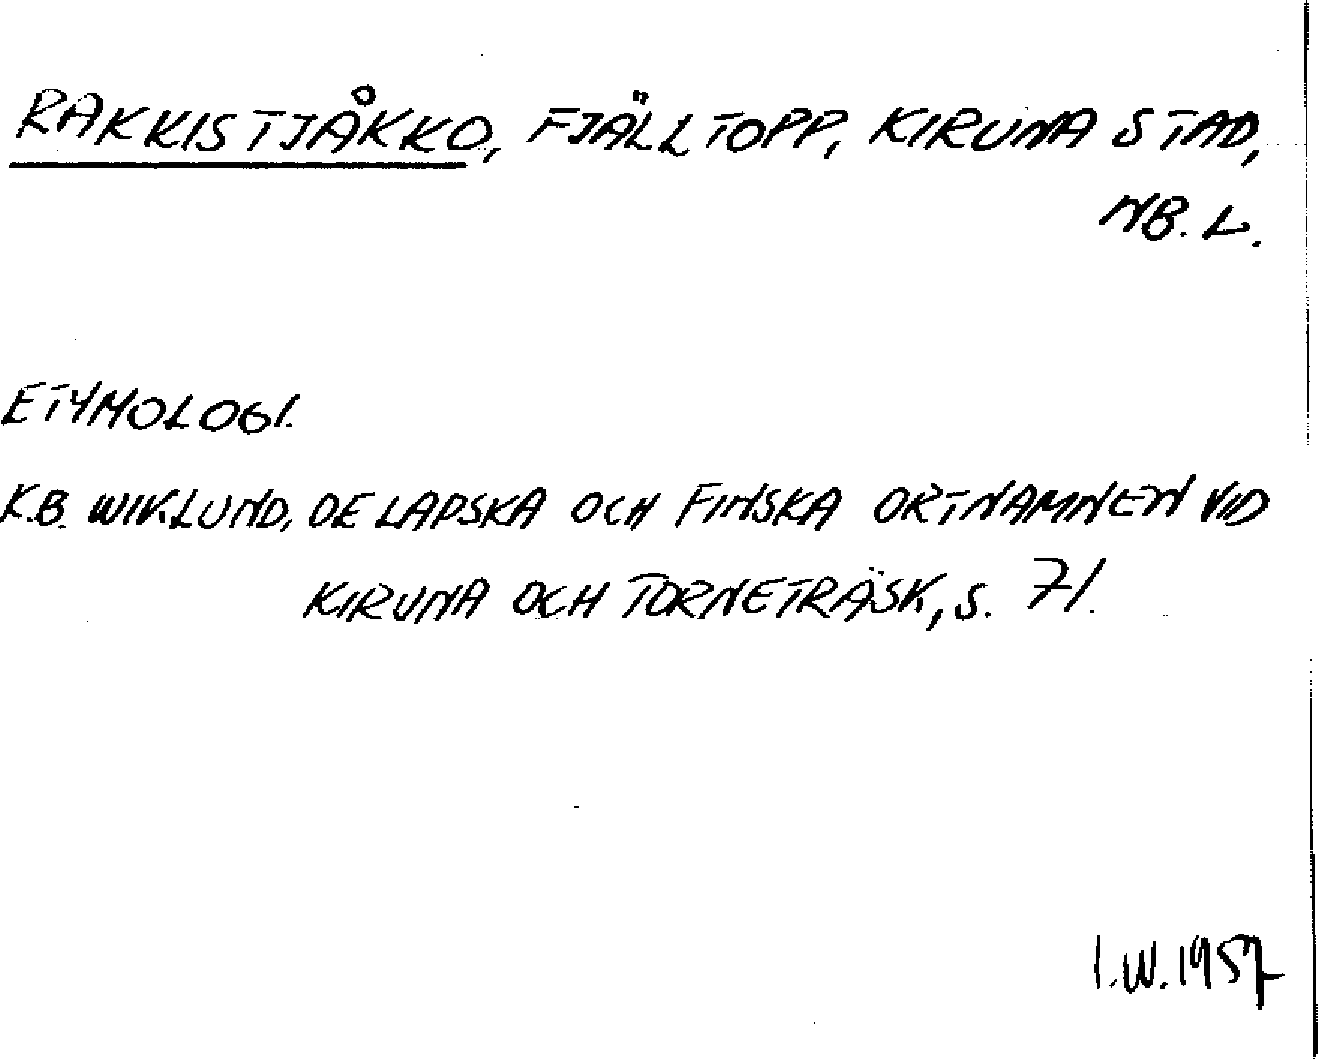 RAKKISTJÅKKO, FJÄLLTOPP, KIRUNA STAD,
NB. L.
ETYMOLOGI.
K.B. WIKLUND, DE LAPSKA OCH FINSKA ORTNAMNEN VID
KIRUNA OCH TORNETRÄSK, S. 71.
I.W. 1957